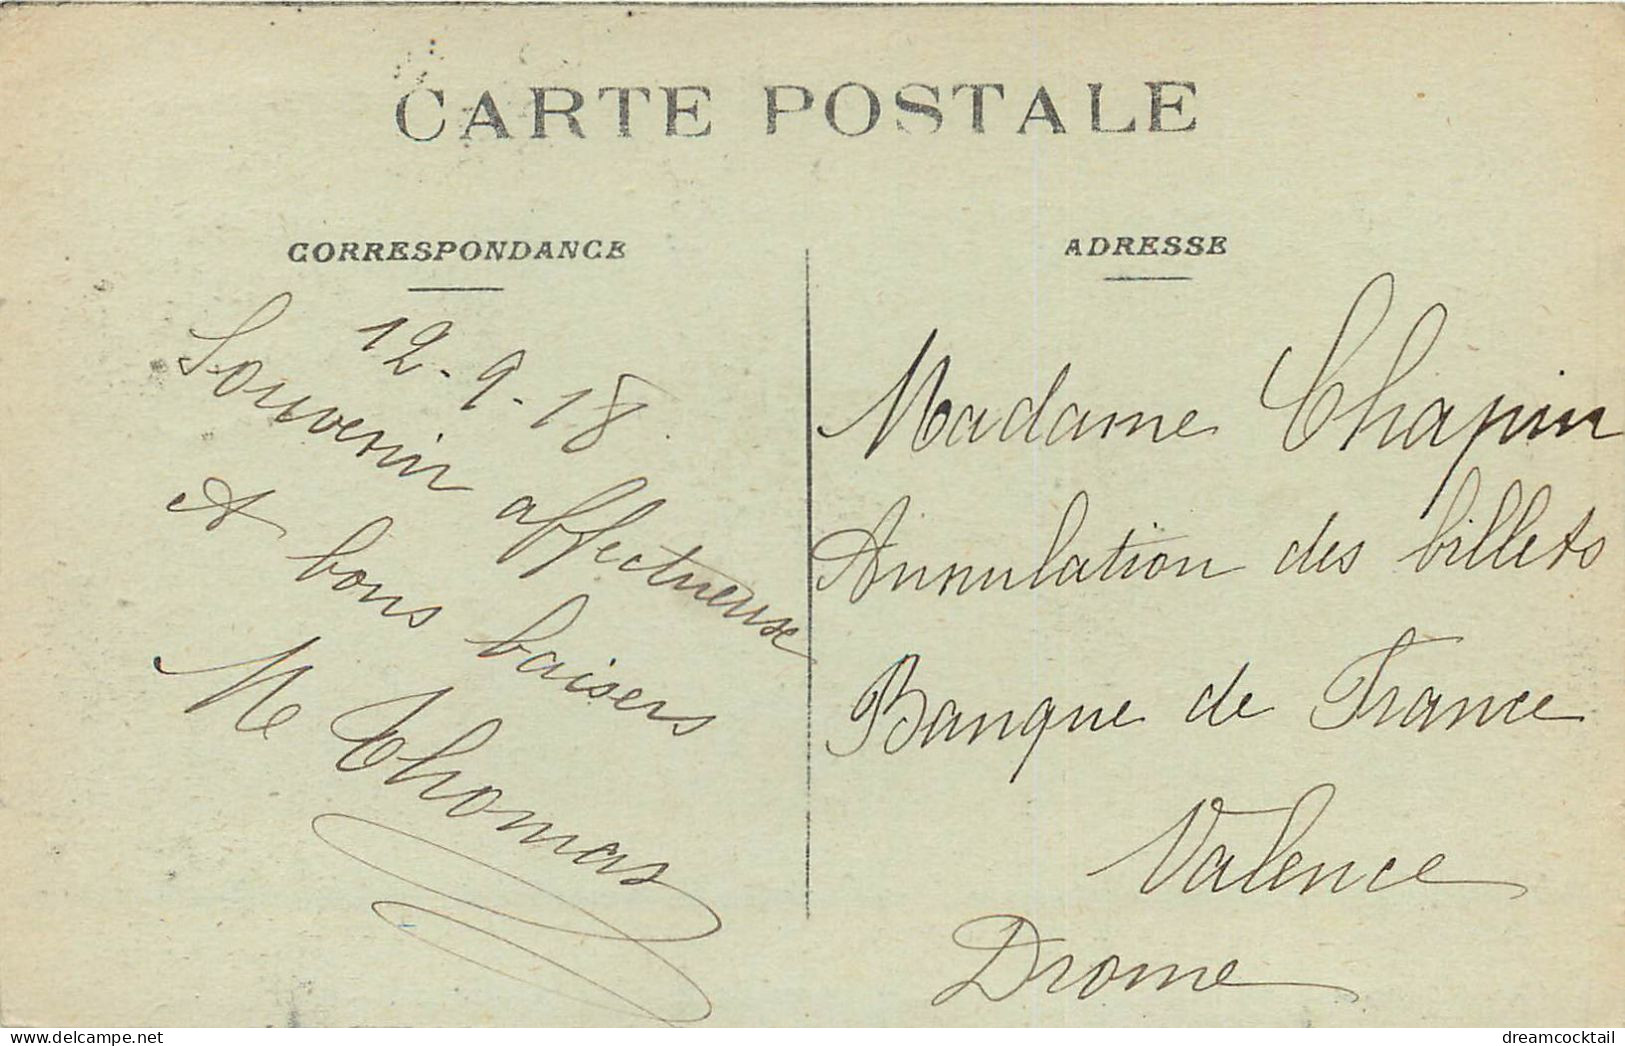 CARTE POSTALE
CORRESPONDANCE
12-9-18.
Souvenir affectueuse
et bons baisers
M Thomas
ADRESSE
Madame Chapin
Annulation des billets
Banque de France
Valence
Drome
www.delcampe.net
dreamcocktail